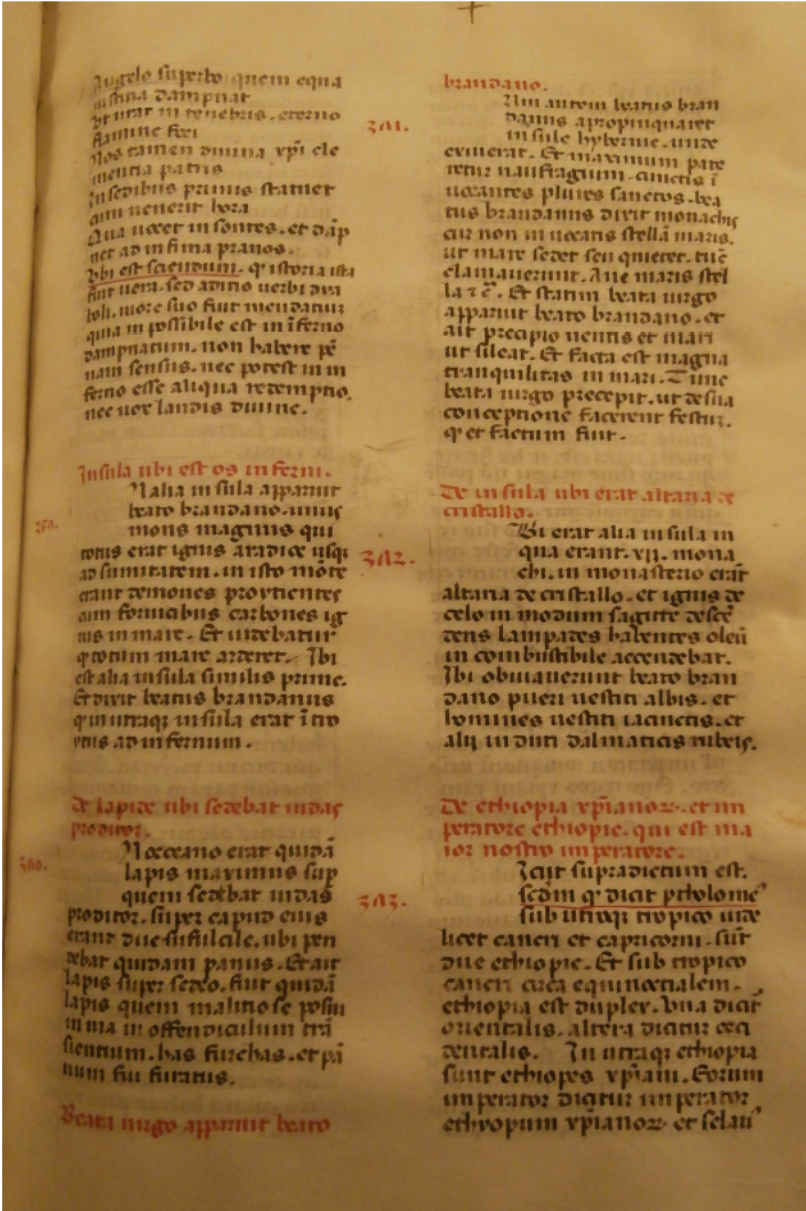 Angelo superbo quem equa
iustitia dampnat
Et urat in tenebris. eterno
flamine fixi
Nos tamen diuina xp̄i cle
mentia patris
In sedibus primis statuet
cum uenerit hora
Qua uocet in sontes. et dāp
net ad infima prauos.
Ubi est sciendum. q' istoria ista
fuit uera. sed aditio uerbi dya
boli. more suo fuit mendatiū
quia in possibile est in īferno
dampnatum. non habere pe̅
nam sensus. nec potest in in
ferno esse aliqua redemptio.
nec uox laudis diuine.
Insula ubi est os inferni.
N alia insula apparuit
beato brandano. unus
mons magnus qui
totus erat ignis aradice usq;
ad sumitatem. in isto mōte
erant demones proycientes
cum forcicibus carbones ig
nis in mare. Et uidebatur
q' totum mare arderet. Ibi
est alia insula similis prime.
Et dixit beatus brandanus
q' in utraq; insula erat ītro
ytus ad infernum.
De lapide ubi sedebat iudas
proditor.
N occeano erat quidā
lapis maximus sup
quem sedebat iudas
proditor. super caput eius
erant due furfulcile. ubi pen
debat quidam panus. Et ait
lapis super sedeo. fuit quidā
lapis quem malitiose posui
in uia in offendiculum trā
sientium. has furchas. et pā
num fui furatus.
Beata uirgo apparuit beato
brandano.
Um autem beatus bran
danus apropinquaret
insule hybernie. unde
exiuerat. Et maximum pate
retur naufragium. cunctis ī
uocantes plures sanctos. bea
tus brandanus dixit monachis
cur non in uocatis stellā maris.
ut mare sedet seu quieret. tūc
clamauerunt. Aue maris stel
la ⁊ c̄. Et statim beata uirgo
apparuit beato brandano. et
ait precipio uentis et mari
ut sileat. Et facta est magna
tranquilitas in mari. Tunc
beata uirgo precepit. ut de sua
conceptione facerent festū.
q' et factum fuit.
De insula ubi erat altaria de
cristallo.
Bi erat alia insula in
qua erant. xij. mona
chi. in monasterio erāt
altaria de cristallo. et ignis de
celo in modum sagitte descē
dens lampades habentes oleū
in combustibile accendebat.
Ibi obuiauerunt beato bran
dano pueri uestiti albis. et
homines uestiti iacinctis. et
alij induti dalmaticis rubeis.
De ethiopia xp̄ianoꝝ. et im
peratore ethiopie. qui est ma
ior nostro imperatore.
Icut supradictum est.
sedm q' dicit ptholome'
sub utroq; tropico uide
licet cancri et capricorni. sūt
due ethiopie. Et sub tropico
cancri circa equinoctialem.
ethiopia est duplex. Una dicit'
orientalis. altera dicitur occi
dentalis. In utraq; ethiopia
sunt ethiopes xp̄iani. Eorum
imperator dicitur imperator
ethyopum xp̄ianoꝝ et selaui'
381.
382.
383.